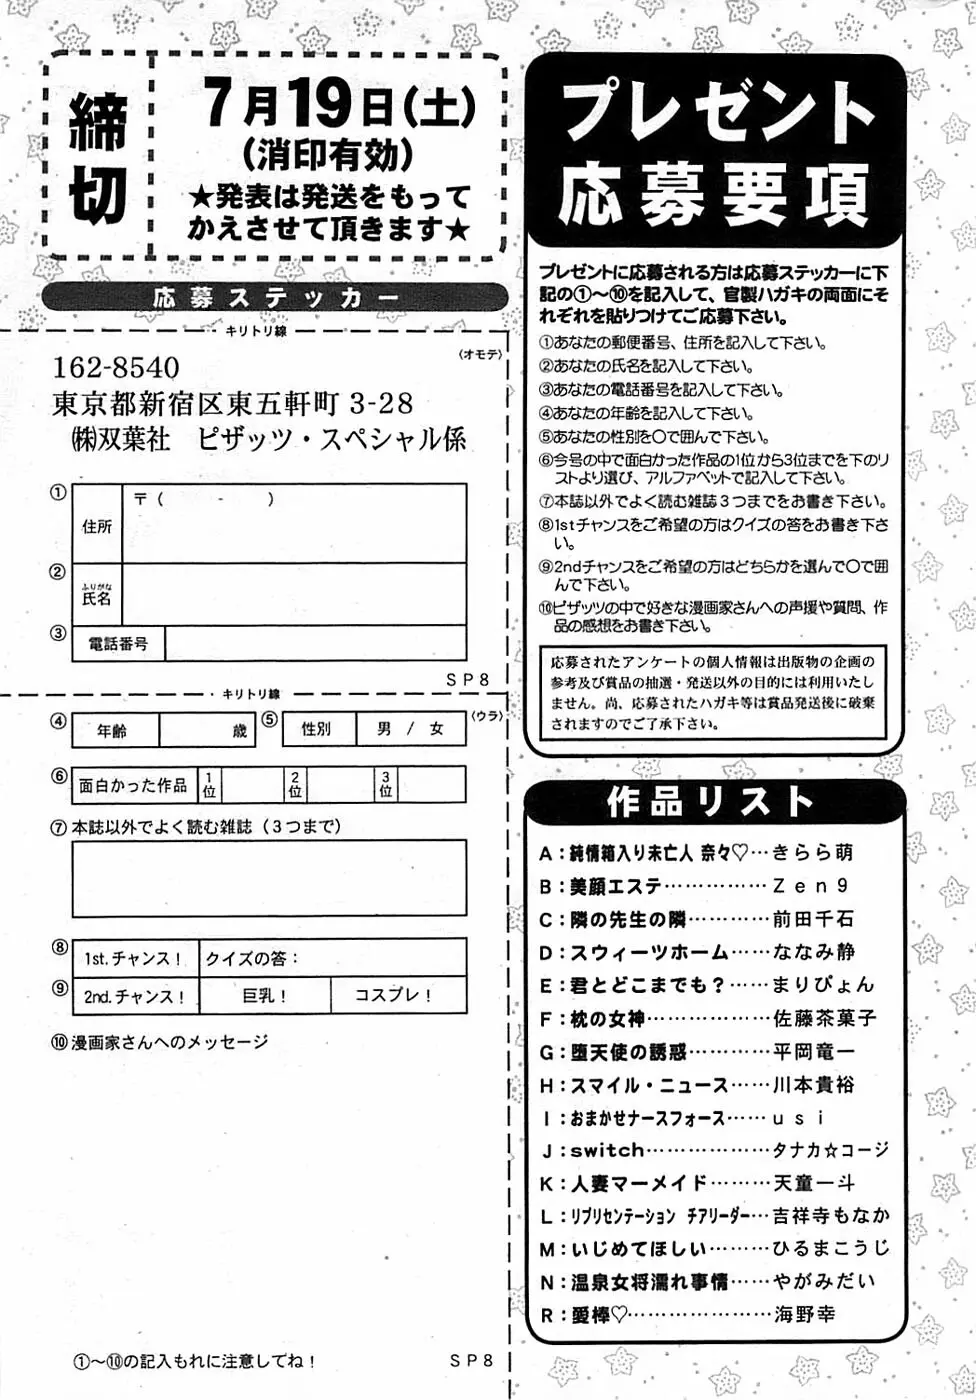 締切
7月19日(土)
(消印有効)
★発表は発送をもって
かえさせて頂きます★
応募ステッカー
キリトリ線
〈オモテ〉
162-8540
東京都新宿区東五軒町 3-28
㈱双葉社　ピザッツ・スペシャル係
① 住所 〒（　　-　　）
② 氏名 ふりがな
③ 電話番号
SP8
キリトリ線
〈ウラ〉
④ 年齢 歳 ⑤ 性別 男 / 女
⑥ 面白かった作品 1位 2位 3位
⑦ 本誌以外でよく読む雑誌（3つまで）
⑧ 1st.チャンス！ クイズの答：
⑨ 2nd.チャンス！ 巨乳！ コスプレ！
⑩ 漫画家さんへのメッセージ
①〜⑩の記入もれに注意してね！
SP8
プレゼント
応募要項
プレゼントに応募される方は応募ステッカーに下
記の①〜⑩を記入して、官製ハガキの両面にそ
れぞれを貼りつけてご応募下さい。
①あなたの郵便番号、住所を記入して下さい。
②あなたの氏名を記入して下さい。
③あなたの電話番号を記入して下さい。
④あなたの年齢を記入して下さい。
⑤あなたの性別を〇で囲んで下さい。
⑥今号の中で面白かった作品の1位から3位までを下のリ
ストより選び、アルファベットで記入して下さい。
⑦本誌以外でよく読む雑誌3つまでをお書き下さい。
⑧1stチャンスをご希望の方はクイズの答をお書き下さ
い。
⑨2ndチャンスをご希望の方はどちらかを選んで〇で囲
んで下さい。
⑩ピザッツの中で好きな漫画家さんへの声援や質問、作
品の感想をお書き下さい。
応募されたアンケートの個人情報は出版物の企画の
参考及び賞品の抽選・発送以外の目的には利用いたし
ません。尚、応募されたハガキ等は賞品発送後に破棄
されますのでご了承下さい。
作品リスト
A：純情箱入り未亡人 奈々♡…きらら萌
B：美顔エステ……………Zen9
C：隣の先生の隣…………前田千石
D：スウィーツホーム……ななみ静
E：君とどこまでも？……まりぴょん
F：枕の女神………………佐藤茶菓子
G：堕天使の誘惑…………平岡竜一
H：スマイル・ニュース……川本貴裕
I：おまかせナースフォース……usi
J：switch………………タナカ☆コージ
K：人妻マーメイド………天童一斗
L：リプリセンテーション チアリーダー…吉祥寺もなか
M：いじめてほしい………ひるまこうじ
N：温泉女将濡れ事情……やがみだい
R：愛棒♡…………………海野幸